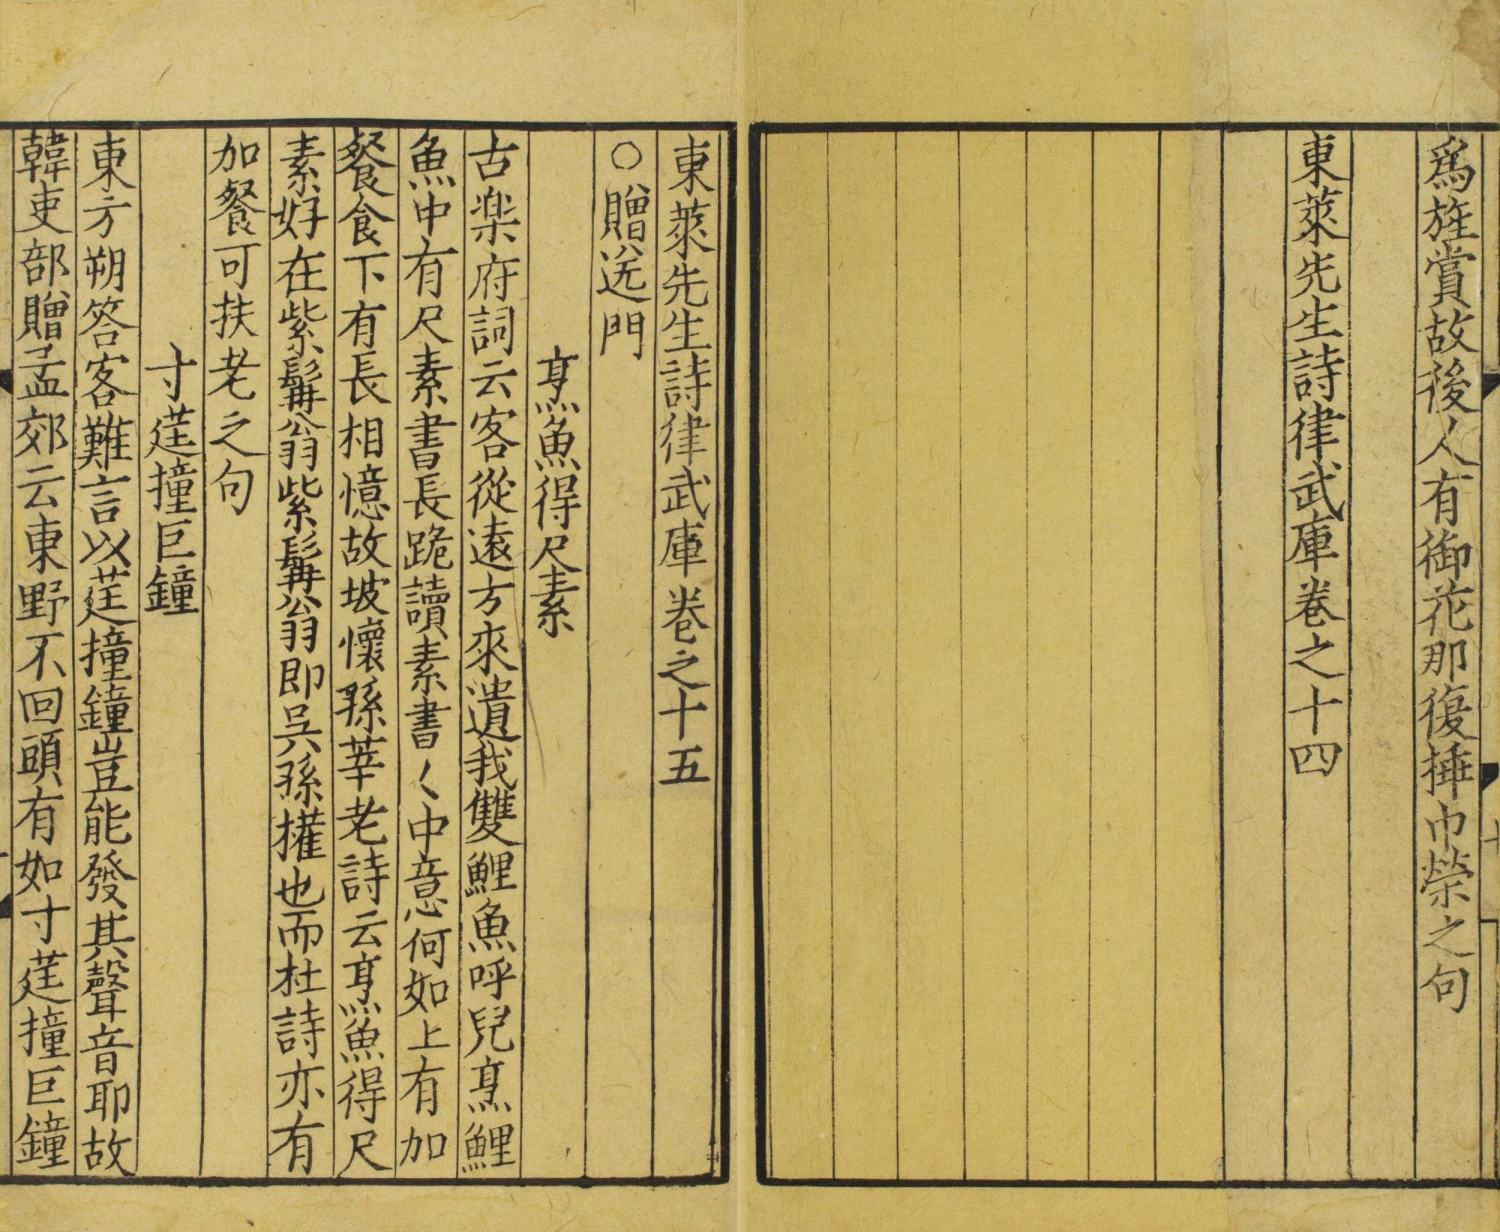 為旌賞故後人有御花那復捶巾榮之句
東萊先生詩律武庫卷之十四
東萊先生詩律武庫卷之十五
○贈送門
烹魚得尺素
古楽府詞云客從遠方來遺我雙鯉魚呼兒烹鯉
魚中有尺素書長跪讀素書〱中意何如上有加
餐食下有長相憶故坡懷孫莘老詩云烹魚得尺
素好在紫髯翁紫髯翁即吳孫權也而杜詩亦有
加餐可扶老之句
寸莛撞巨鐘
東方朔答客難言以莛撞鐘豈能發其聲音耶故
韓吏部贈孟郊云東野不回頭有如寸莛撞巨鐘